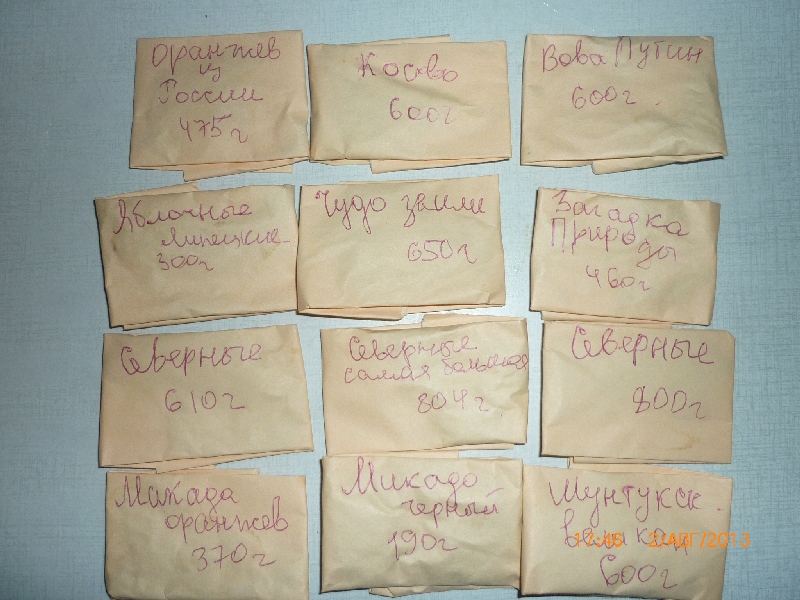 Оранжев
из
России
475г
Косво
600г
Вова Путин
600г.
Яблочные
Липецкие
300г
Чудо земли
650г
Загадка
Природы
460г
Северные
610г
Северные
самая большая
804г.
Северные
800г
Микада
оранжев
370г
Микадо
черный
190г
Шунтукск.
великан
600г
2/АВГ/2013